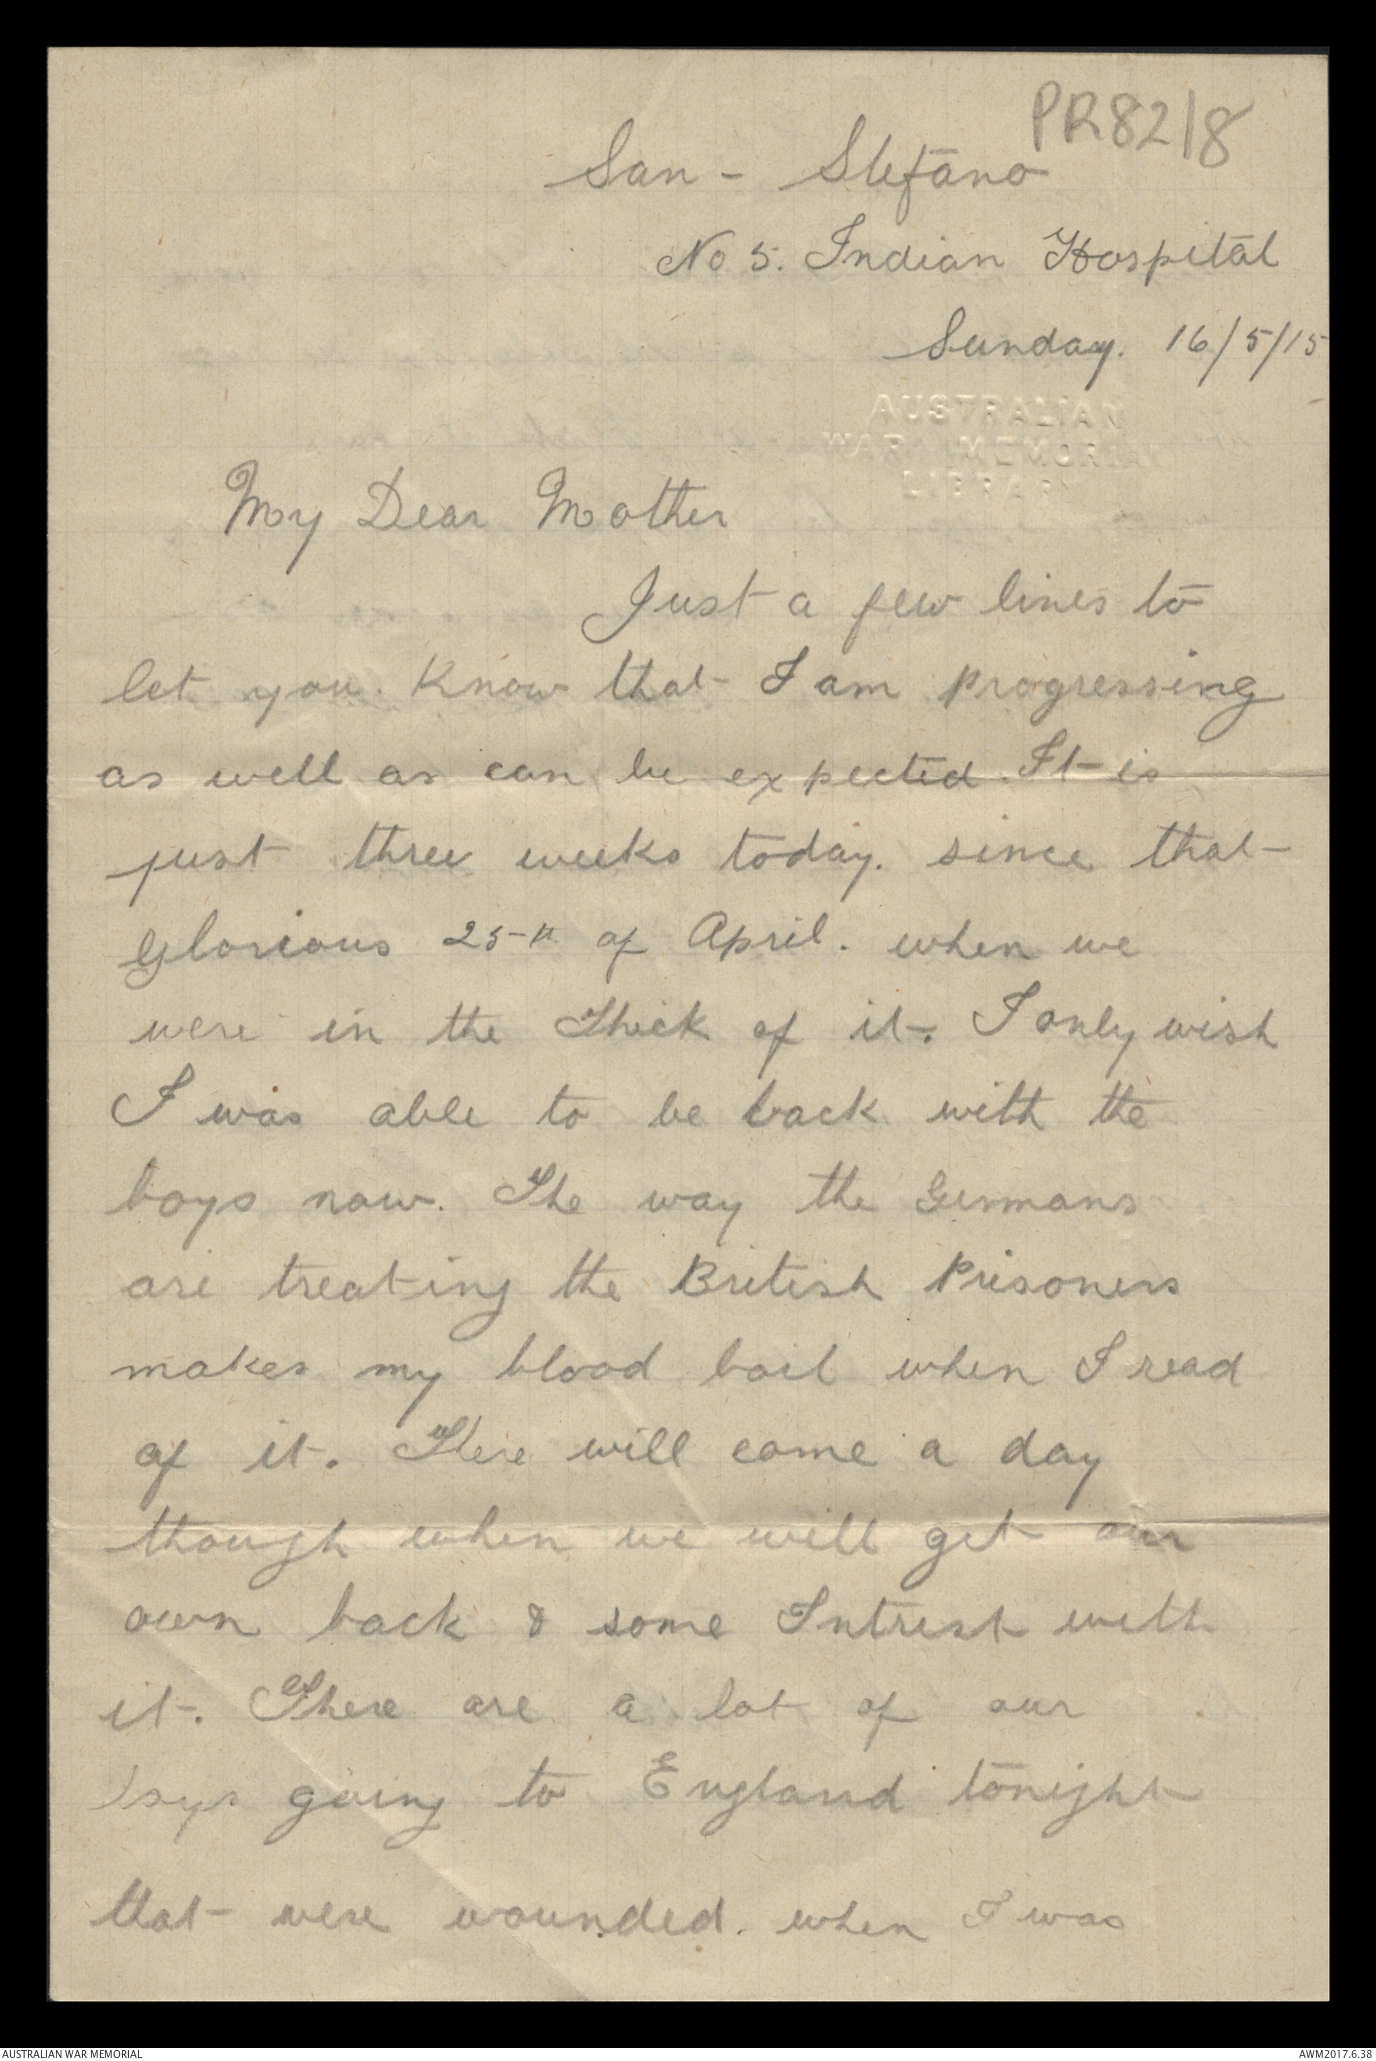 PR82/8
San - Stefano
No 5. Indian Hospital
Sunday. 16/5/15
AUSTRALIAN
WAR MEMORIAL
LIBRARY
My Dear Mother
Just a few lines to
let you Know that I am progressing
as well as can be expected. It is
just three weeks today. since that
Glorious 25th of April. when we
were in the Thick of it. I only wish
I was able to be back with the
boys now. The way the Germans
are treating the British Prisoners
makes my blood boil when I read
of it. There will come a day
though when we will get our
own back & some Intrest with
it. There are a lot of our
boys going to England tonight
that were wounded. when I was
AUSTRALIAN WAR MEMORIAL
AWM2017.6.38